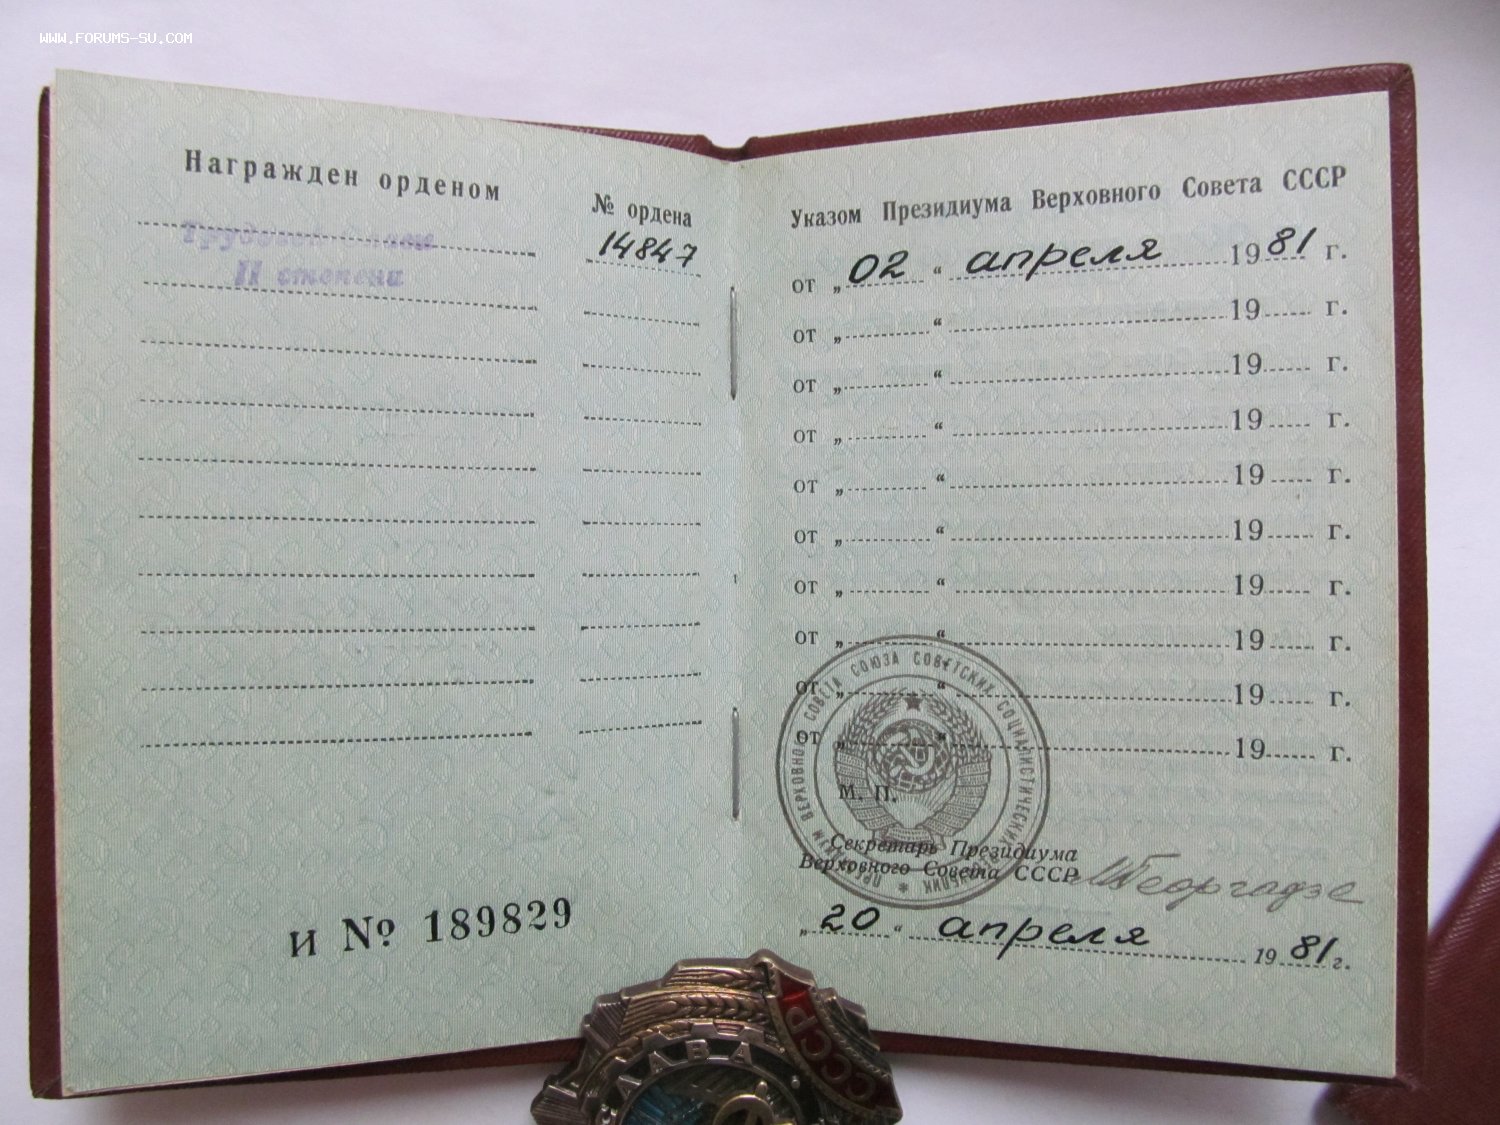 WWW.FORUMS-SU.COM
Награжден орденом
№ ордена
Трудовой Славы
II степени
14847
И № 189829
Указом Президиума Верховного Совета СССР
от „02“ апреля 1981 г.
от „ “ 19 г.
от „ “ 19 г.
от „ “ 19 г.
от „ “ 19 г.
от „ “ 19 г.
от „ “ 19 г.
от „ “ 19 г.
от „ “ 19 г.
от „ “ 19 г.
ПРЕЗИДИУМ ВЕРХОВНОГО СОВЕТА СОЮЗА СОВЕТСКИХ СОЦИАЛИСТИЧЕСКИХ РЕСПУБЛИК
М. П.
Секретарь Президиума
Верховного Совета СССР МГеоргадзе
„20“ апреля 1981 г.
СЛАВА
СССР